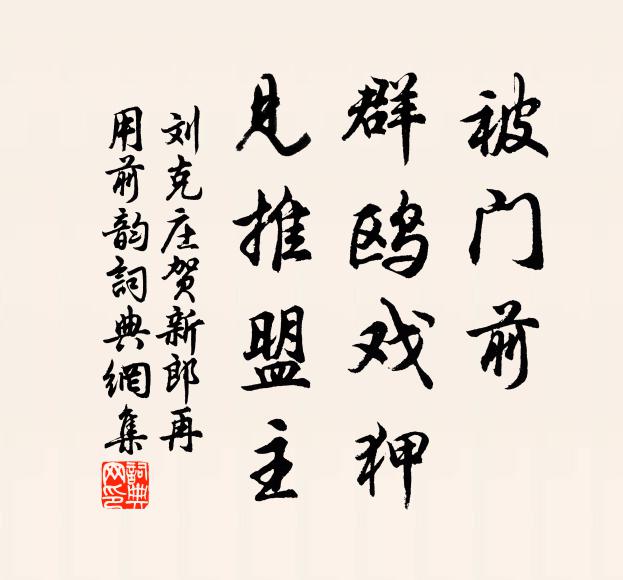 被门前
群鸥戏狎
见推盟主
刘克庄贺新郎再
用前韵詞典網集